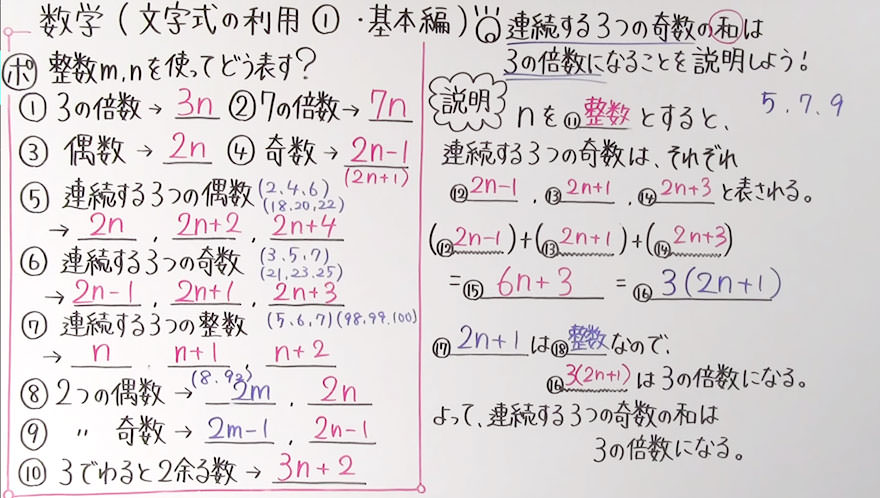 数学(文字式の利用①・基本編)
ポ 整数m,nを使ってどう表す?
① 3の倍数→ 3n ②7の倍数→ 7n
③ 偶数 → 2n ④ 奇数 → 2n-1
(2n+1)
⑤ 連続する3つの偶数(2,4,6)
(18.20,22)
→ 2n , 2n+2 , 2n+4
⑥ 連続する3つの奇数 (3,5,7)
(21,23,25)
→ 2n-1 , 2n+1 , 2n+3
⑦ 連続する3つの整数 (5,6,7)(98,99,100)
→ n , n+1 , n+2
(8,92)
⑧ 2つの偶数→ 2m , 2n
⑨ 〃 奇数→ 2m-1 , 2n-1
⑩ 3でわると2余る数→ 3n+2
連続する3つの奇数の和は
3の倍数になることを説明しよう!
説明 nを⑪整数とすると、
5,7,9
連続する3つの奇数は、それぞれ
⑫2n-1 , ⑬2n+1 , ⑭2n+3と表される。
(⑫2n-1)+(⑬2n+1)+(⑭2n+3)
=⑮ 6n+3 =⑯ 3(2n+1)
⑰ 2n+1は⑱整数なので、
⑯3(2n+1)は3の倍数になる。
よって、連続する3つの奇数の和は
3の倍数になる。